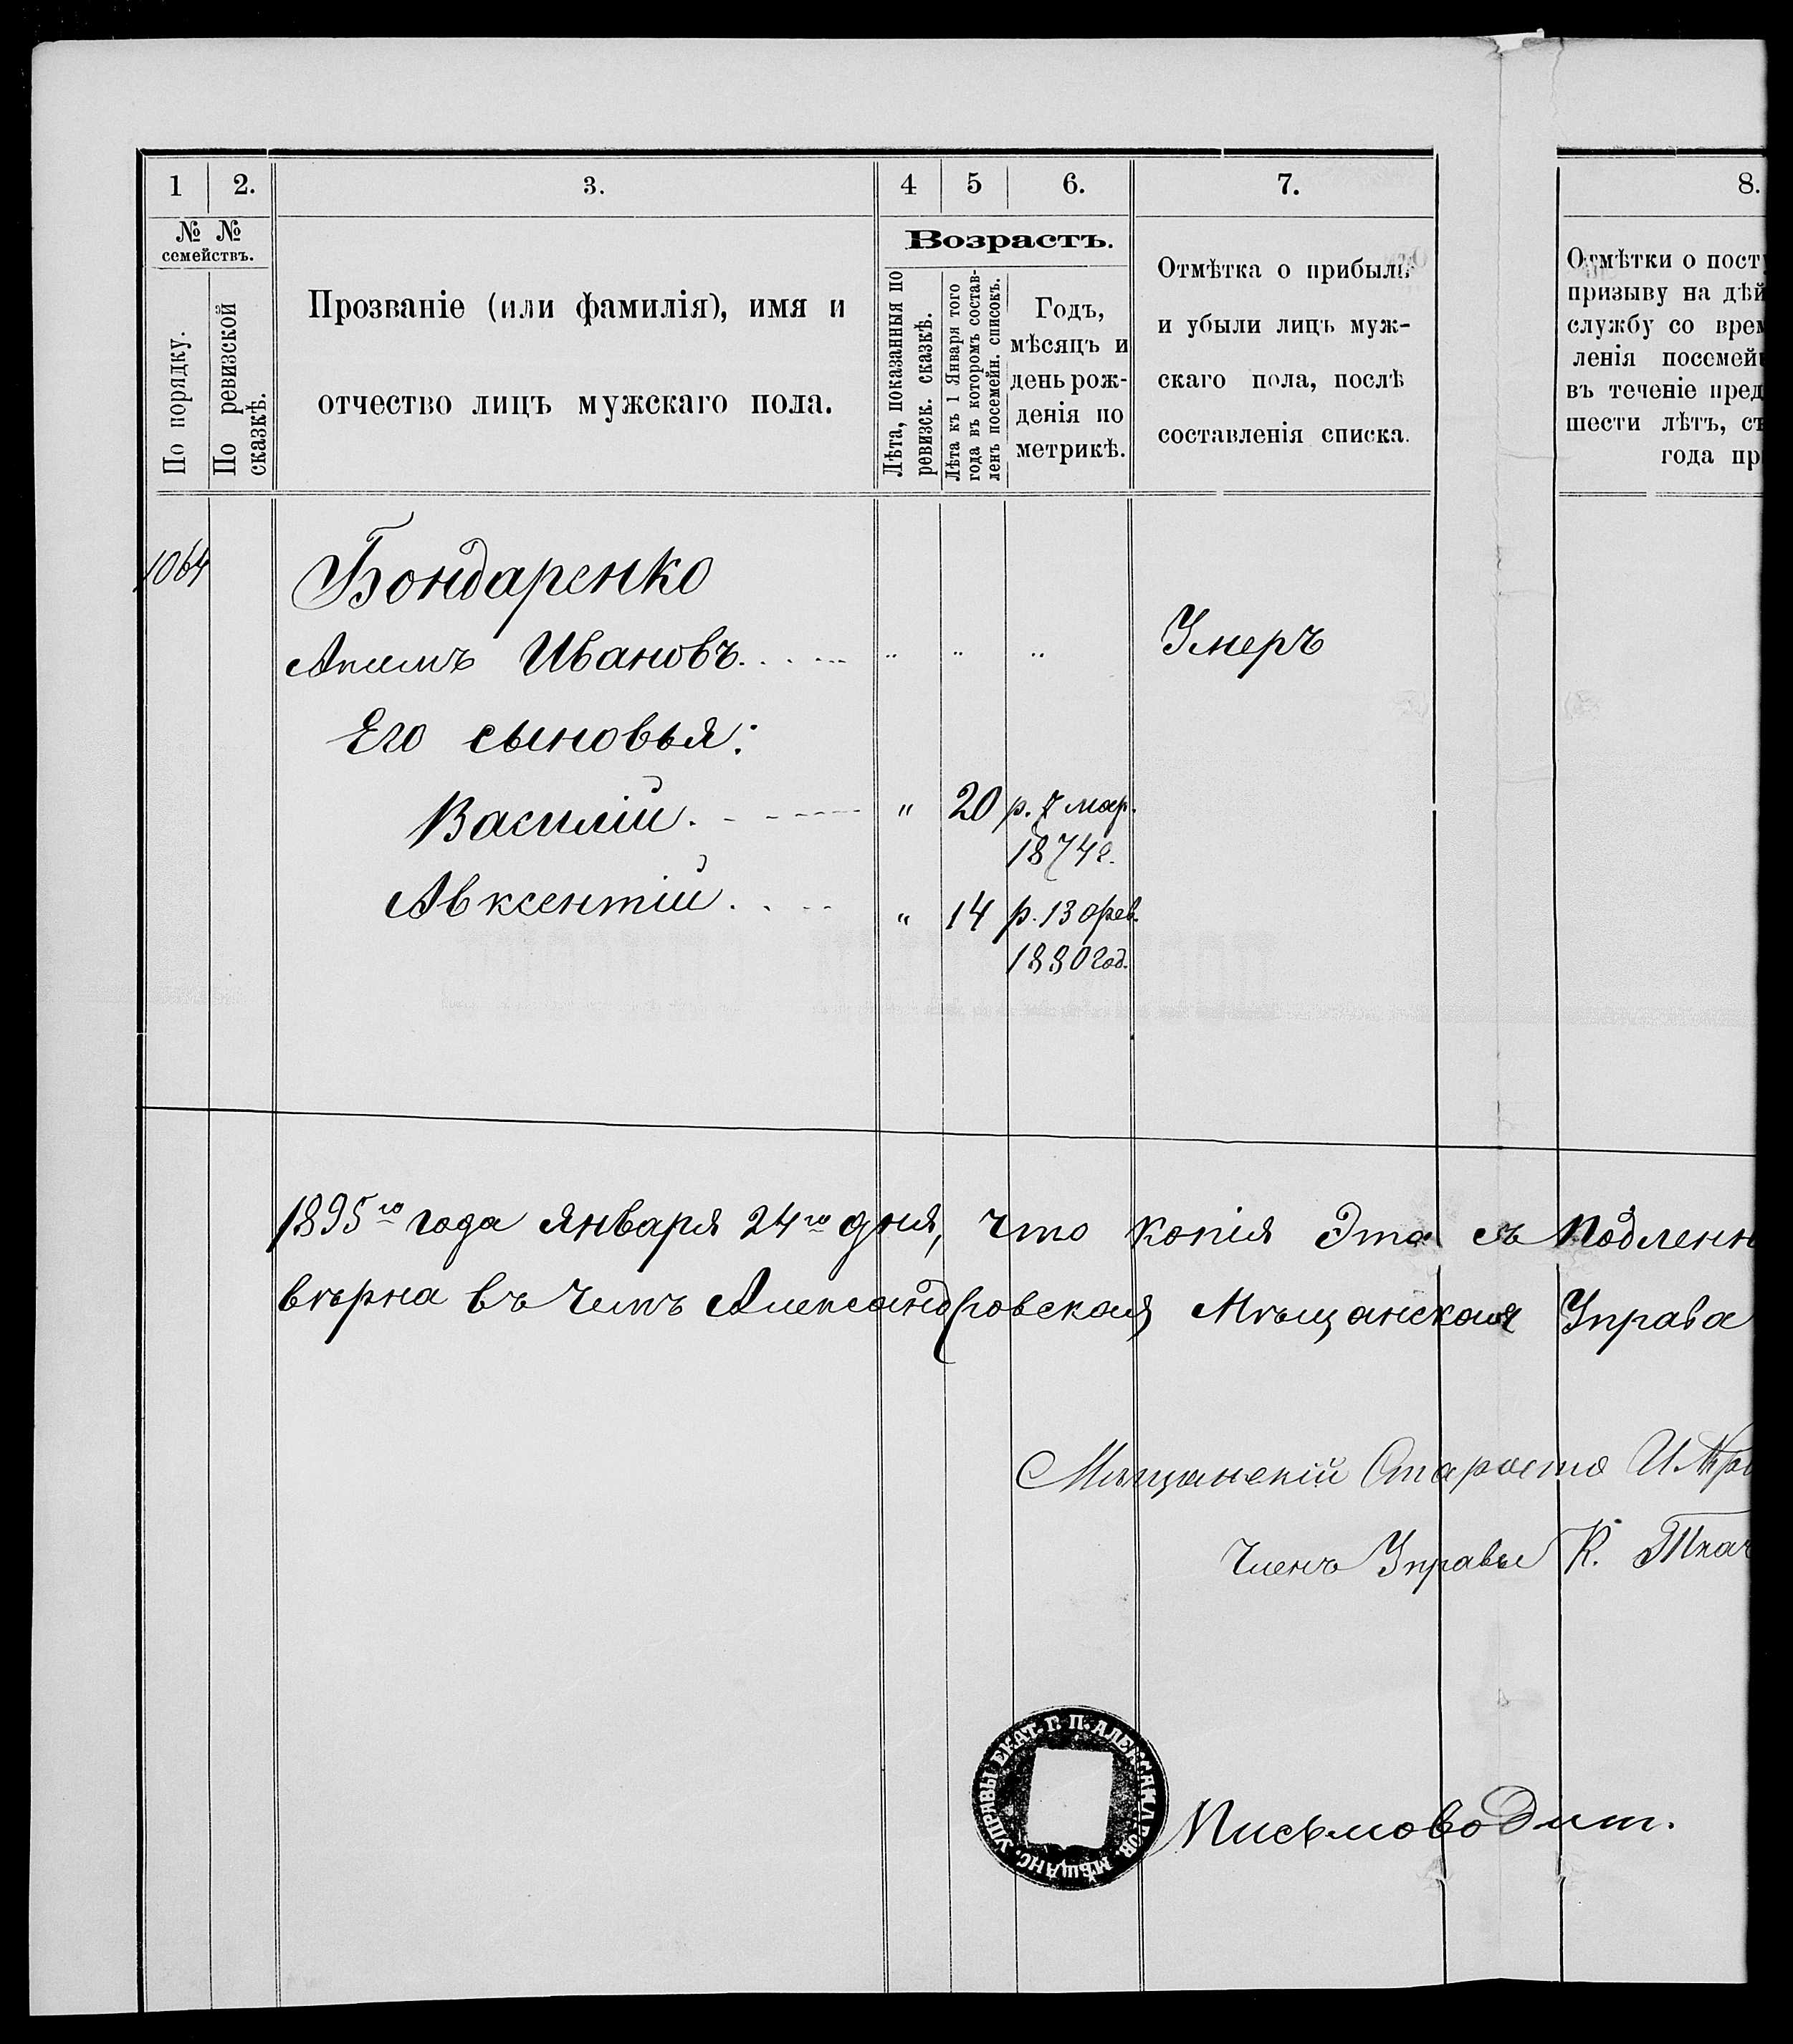 1 2. 3. 4 5 6. 7. 8.
№ №
семействъ.
По порядку.
По ревизской
сказкѣ.
Прозваніе (или фамилія), имя и
отчество лицъ мужскаго пола.
Возрастъ.
Лѣта, показанныя по
ревизск. сказкѣ.
Лѣта къ 1 Января того
года въ которомъ состав-
ленъ посемейн. списокъ.
Годъ,
мѣсяцъ и
день рож-
денія по
метрикѣ.
Отмѣтка о прибыли
и убыли лицъ муж-
скаго пола, послѣ
составленія списка.
Отмѣтки о пост
призыву на дѣй
службу со врем
ленія посемей
въ теченіе пред
шести лѣтъ, съ
года пр
1064 Бондаренко
Акимъ Ивановъ. . . . . . " " " Умеръ
Его сыновья:
Василій. - - - - - " 20 р. 7 мар.
1874 г.
Авксентій. . . . " 14 р. 13 фев.
1880 год.
1895го года Января 24го дня, что копія эта съ подленн
вѣрна въ чемъ Александровская Мѣщанская Управа
Мѣщанскій Староста И.
Членъ Управы К. Ткач
УПРАВЫ ЕКАТ. Г. П. АЛЕКСАНДРОВ. МѢЩАНС.
Письмоводит.